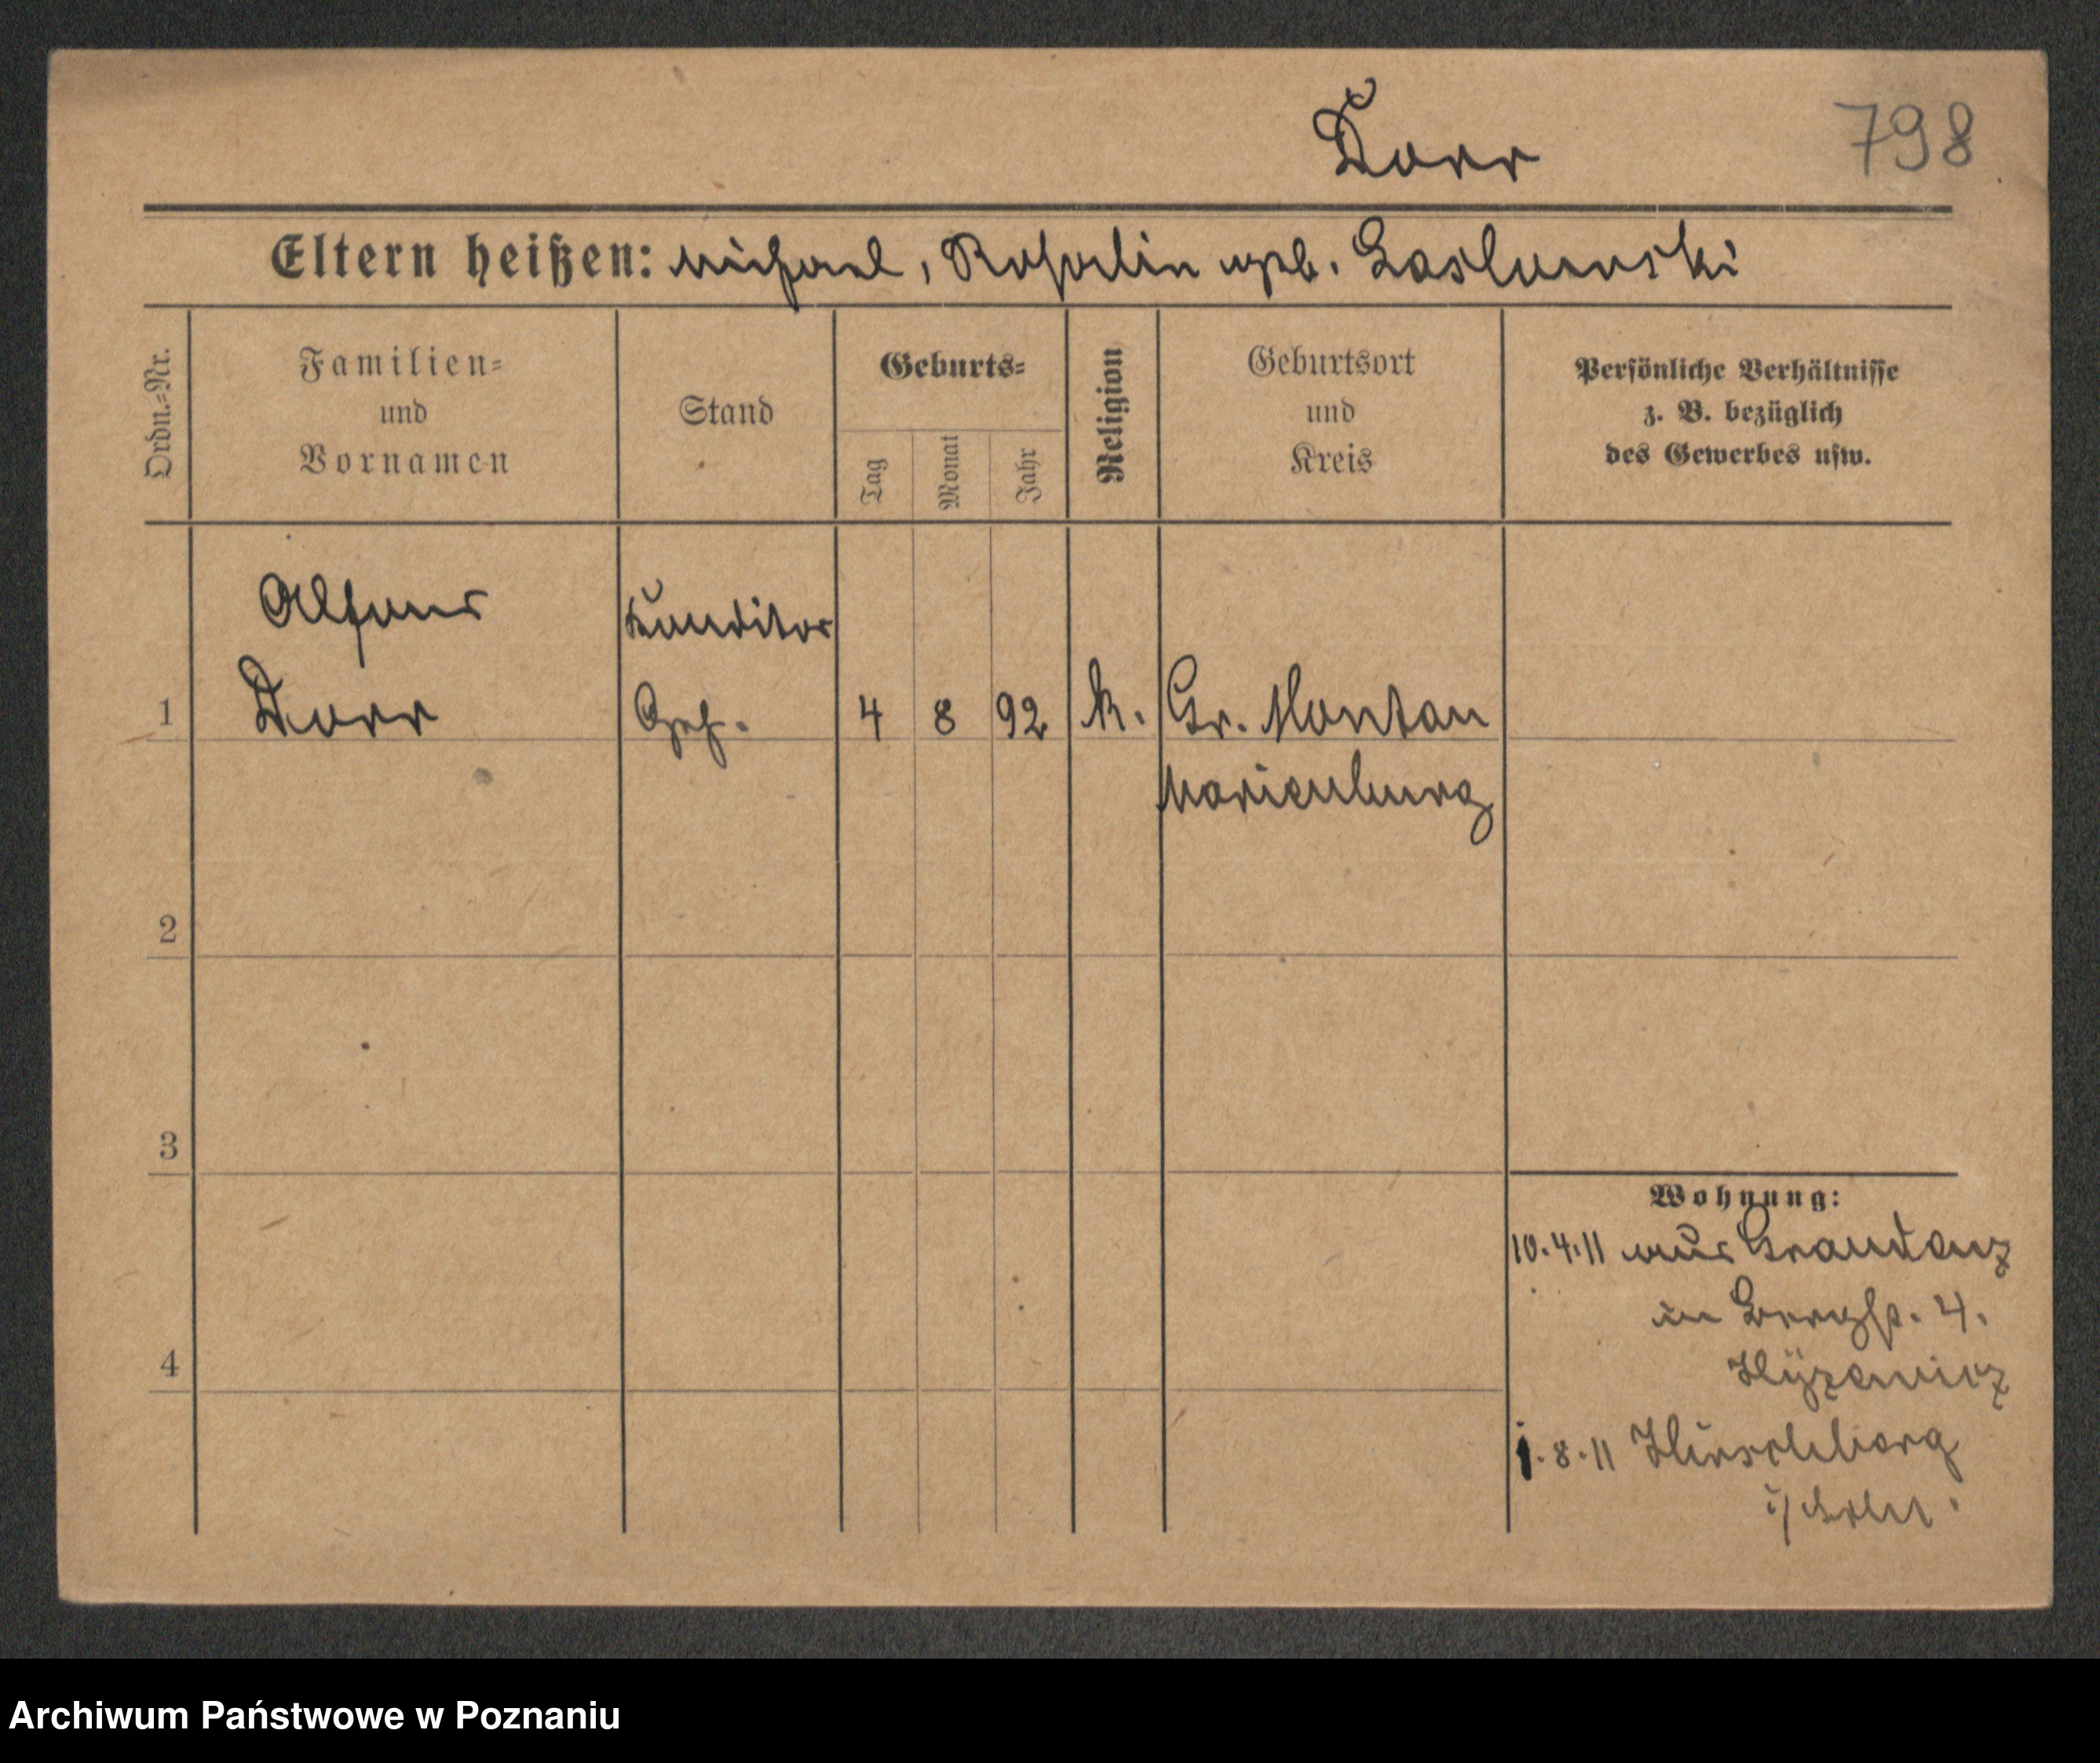 Dorr 798
Eltern heißen: Michael, Rosalie geb. Laslowski
Ordn.=Nr.
Familien=
und
Vornamen
Stand
Geburts=
Tag
Monat
Jahr
Religion
Geburtsort
und
Kreis
Persönliche Verhältnisse
z. B. bezüglich
des Gewerbes usw.
Alfons Konditor
1 Dorr Geh. 4 8 92 k. Gr. Montau
Marienburg
2
3
Wohnung:
10.4.11 aus Graudenz
in Bergstr. 4.
4
1.8.11 Hirschberg
i/Schl.
Archiwum Państwowe w Poznaniu